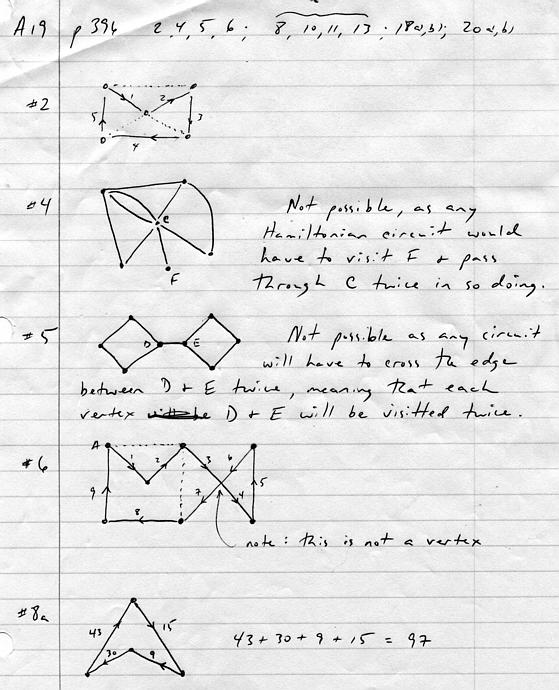 A19 p 396 2, 4, 5, 6; 8, 10, 11, 13; 18a,b); 20a,b)
#2
1 2
5 3
4
#4
C
F
Not possible, as any
Hamiltonian circuit would
have to visit F & pass
through C twice in so doing.
#5
D E
Not possible as any circuit
will have to cross the edge
between D & E twice, meaning that each
vertex D & E will be visitted twice.
#6
A
1 2 3 6
9 7 4 5
8
note: this is not a vertex
#8a
43 15
30 9
43 + 30 + 9 + 15 = 97